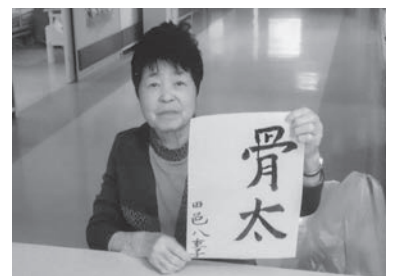 骨太
田邑八重子